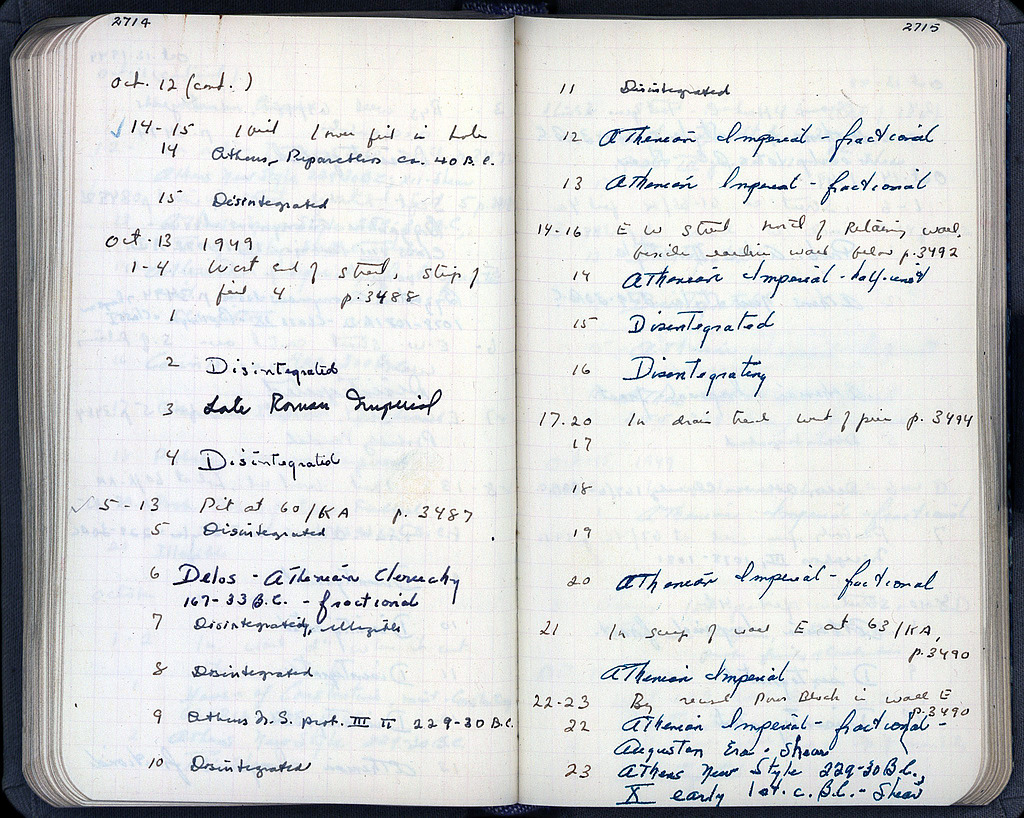 2714
Oct. 12 (cont.)
14-15 lower fill in hole
14 Athens, Peparethos ca. 40 B.C.
15 Disintegrated
Oct. 13 1949
1-4 West end of street, strip of
fill 4 p.3488
1
2 Disintegrated
3 Late Roman Imperial
4 Disintegrated
5-13 Pit at 60/KA p. 3487
5 Disintegrated
6 Delos - Athenian Cleruchy
167-33 B.C. - fractional
7 Disintegrated, illegible
8 Disintegrated
9 Athens N.S. 229-30 B.C.
10 Disintegrated
2715
11 Disintegrated
12 Athenian Imperial fractional
13 Athenian Imperial - fractional
14-16 E W Street north of Retaining wall,
beside earlier wall below p.3492
14 Athenian Imperial - half-unit
15 Disintegrated
16 Disintegrating
17-20 In drain trench west of pier p. 3494
17
18
19
20 Athenian Imperial - fractional
21 In scrap of wall E at 63/KA,
p.3490
Athenian Imperial
22-23 By Poros Block in wall E
p.3490
22 Athenian Imperial - fractional -
Augustan Era - Shear
23 Athens New Style 229-30 B.C.,
X early 1st. c. B.C. - Shear